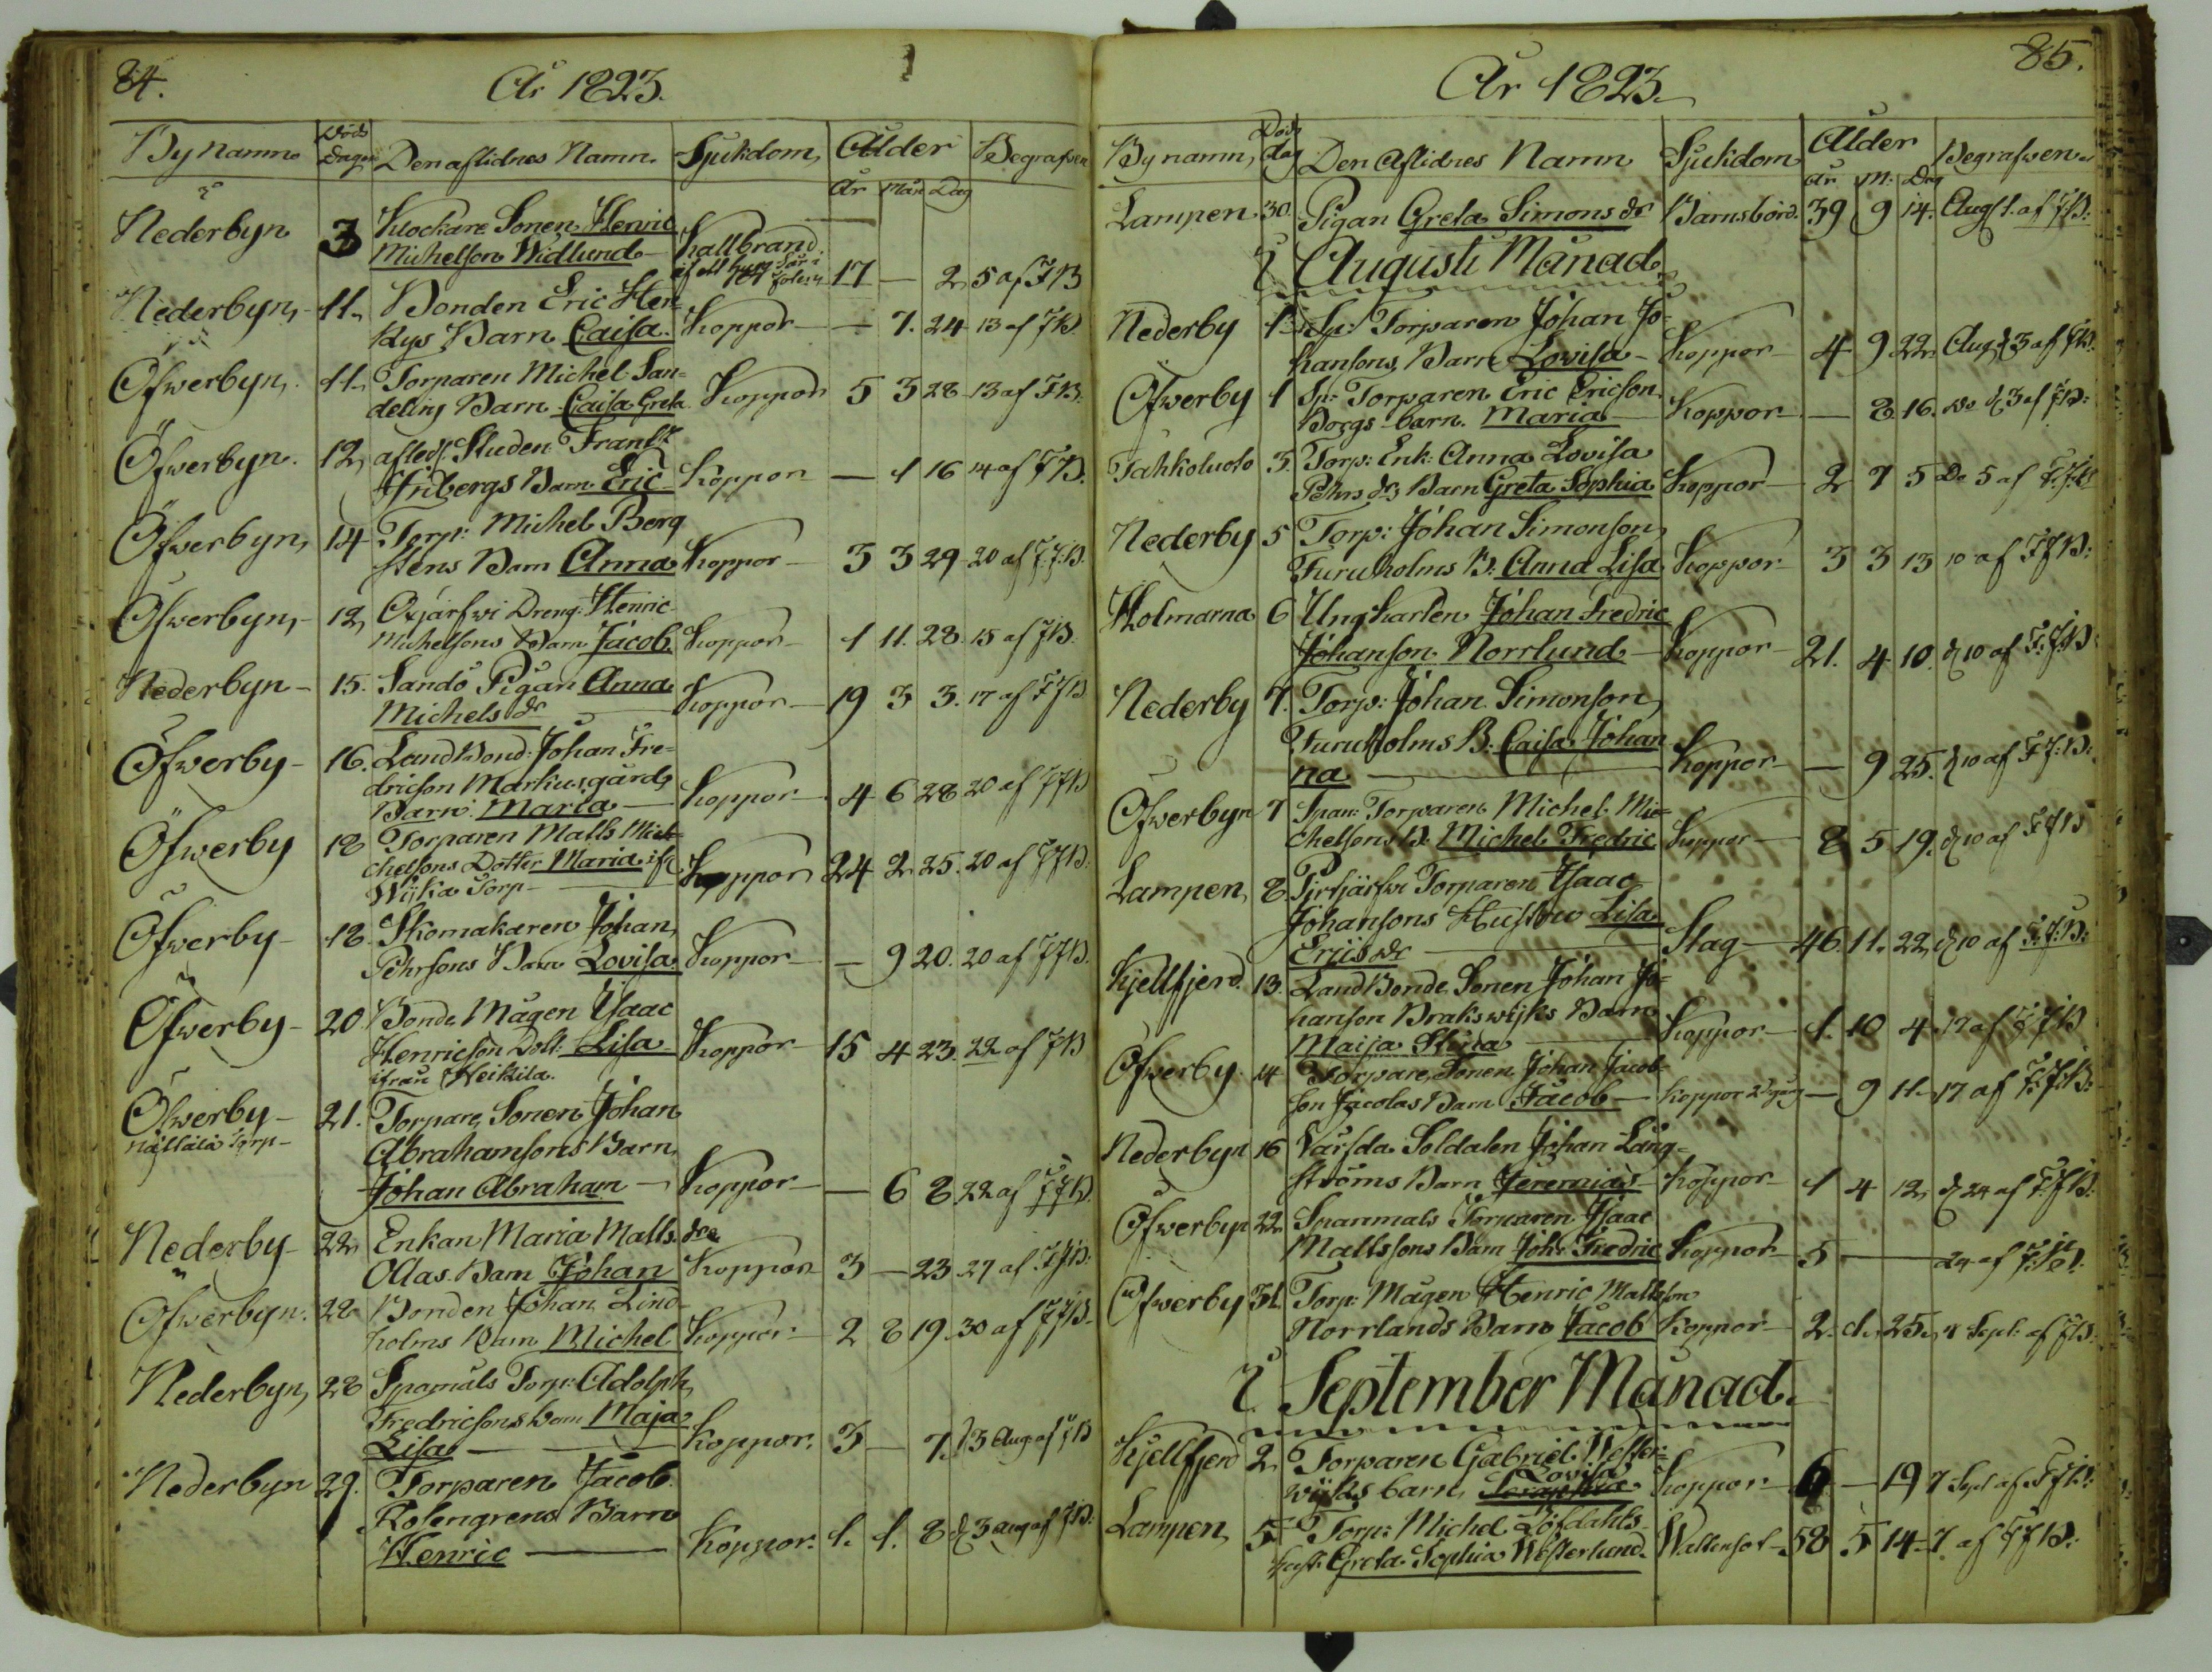 84.
År 1823.
By namn Döds Dagen Den aflidnes Namn. Sjukdom, Ålder Begrafven
År Mån Dag
Nederbyn 3 Klockare Sonen Henric
Michelson Widlund Kallbrand 17 — 2 5 af FB
Nederbyn, 11. Bonden Eric Hen-
Rys Barn Caisa. Koppor — 7. 24 13 af FB.
Öfwerbyn, 11. Torparen Michel San=
deling Barn Caisa Greta Koppor 5 3 28 13 af FB.
Öfwerbyn. 12, afled. Studen Frans
Fribergs Barn Eric Koppor — 1 16 14 af FB.
Öfwerbyn, 14 Torp: Michel Berg
stens Barn Anna Koppor 3 3 29 20 af FFB.
Öfwerbyn, 12, Oxjärfwi Dreng: Henric
Michelsons Barn Jacob. Koppor 1 11. 28. 15 af FB.
Nederbyn 15. Sandö Pigan Anna
Michels dr Koppor 19 3 3. 17 af FFB
Öfwerby 16. Land Bond: Johan Fre=
dricson Markusgårds
Barn: Maria Koppor 4 6 28 20 af FFB
Öfwerby 18 Torparen Matts Mic-
chelsons Dotter Maria if
Wijka Torp Koppor 24 2 25. 20 af FFB.
Öfwerby 18. Skomakaren Johan
Pehrsons Barn Lovisa. Koppor — 9 20. 20 af FFB.
Öfwerby 20 Bonde Mågen Isaac
Henricson Dott: Lisa Koppor 15 4 23. 22 af FB
ifrån Heikila.
Öfwerby 21. Torpare Sonen Johan
Nättälä Torp Abrahamsons Barn
Johan Abraham Koppor — 6 8 22 af FFB.
Nederby 22 Enkan Maria Matts dr
Ollas Barn Johan Koppor 3 — 23 27 af FFB.
Öfwerbyn. 28 Bonden Johan Lind
holms Barn Michel Koppor 2 8 19. 30 af FFB.
Nederbyn, 28 Spamåls Torp: Adolph
Fredricsons barn Maja
Lisa Koppor. 3 — 7. d 3 Aug af FB
Nederbyn 29. Torparen Jacob
Rosengrens Barn
Henric Koppor. 1. 1. 8 d 3 aug af FB.
85.
År 1823.
By namn, Döds dag Den Aflidnes Namn Sjukdom Ålder Begrafwen
År M: Dag
Lampen 30. Pigan Greta Simons dr Barnsbörd. 39 9 14. Aug 1. af FB:
Augusti Månad
Nederby 1 Sp: Torparen Johan Jo-
hansons Barn Lovisa Koppor 4 9 22, Aug d 3 af FB.
Öfwerby 1 Sp: Torparen Eric Ericson
Borgs barn. Maria Koppor — 8 16. do d 3 af FB:
Tahkoluoto 3. Torp: Enk: Anna Lovisa
Pehrs dr Barn Greta Sophia Koppor 2 7 5 Do 5 af F.F.B
Nederby 5 Torp: Johan Simonson
Furuholms B: Anna Lisa Koppor 3 3 13 10 af FFB:
Holmarna 6 Ungkarlen Johan Fredric
Johanson Norrlund Koppor 21. 4 10. d 10 af F.F.B
Nederby 7. Torp: Johan Simonson
Furuholms B: Caisa Johan
na Koppor — 9 25. d 10 af FF.B:
Öfwerbyn 7 Span: Torparen Michel Mic-
chelsons B. Michel Fredric Koppor 8 5 19. d 10 af FFB
Lampen, 8. Pirtjärfvi Torparen Isaac
Johansons Hustru Lisa
Eriis dr Slag 46. 11. 22, d 10 af F.F.B:
Kjellfjerd. 13. Land Bonde Sonen Johan Jo-
hanson Brakswijks Barn
Maija Stina Koppor 1. 10 4 17 af FFB
Öfwerby. 14 Torpare Sonen Johan Jacob-
son Jacolas Barn Jacob Koppor — 9 11. 17 af F.F.B:
Nederbyn 16 Värfda Soldaten Johan Lång-
ströms Barn Jeremias Koppor 1 4 12, d 24 af F.F.B:
Öfwerbyn 22 Spanmåls Torparen Isaac
Mattssons Barn Joh. Fredric Koppor 5 — 24 af F.F.B.
Öfwerby 31. Torp: Mågen Henric Mattson
Norrlands Barn Jacob Koppor 2. 1. 25. Sept. af FB.
September Månad.
Kjellfjerd 2, Torparen Gabriel Wester-
Lovisa
wijks barn Koppor 6 — 19 7 Sept af FFB:
Lampen, 5 Torp: Michel Löfdahls
hust: Greta Sophia Westerlund. Wattensot 58 5 14 7. af FFB.